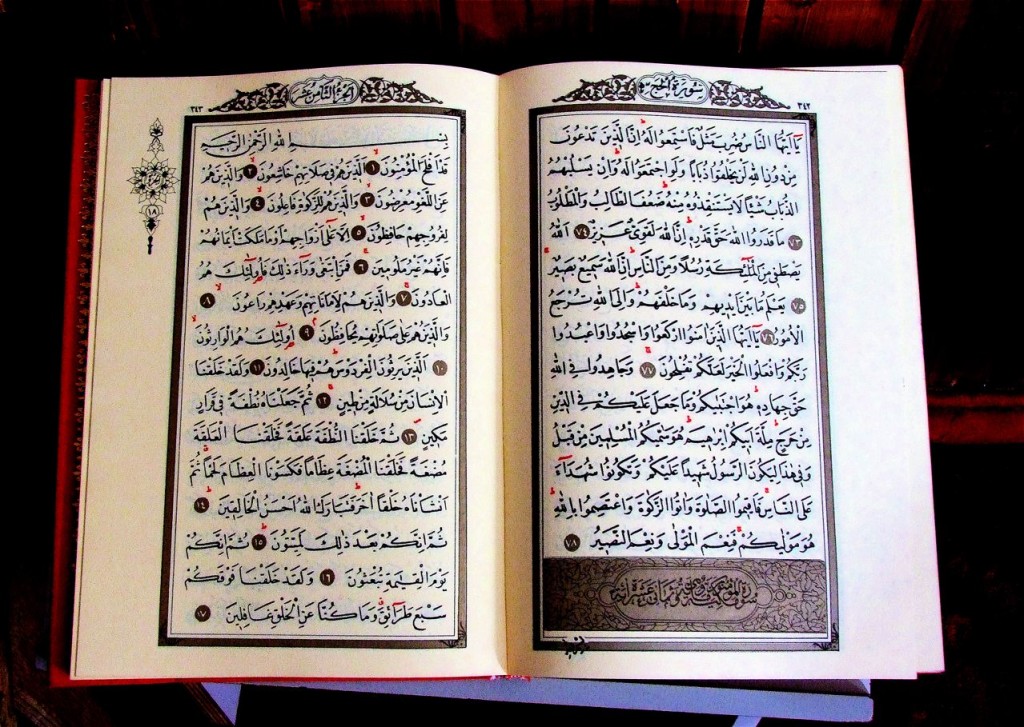 سُورَةُ الْحَجِّ
٣٤٢
يَٓا اَيُّهَا النَّاسُ ضُرِبَ مَثَلٌ فَاسْتَمِعُوا لَهُ اِنَّ الَّذِينَ تَدْعُونَ
مِنْ دُونِ اللهِ لَنْ يَخْلُقُوا ذُبَاباً وَلَوِ اجْتَمَعُوا لَهُ وَاِنْ يَسْلُبْهُمُ
الذُّبَابُ شَيْئاً لَا يَسْتَنْقِذُوهُ مِنْهُ ضَعُفَ الطَّالِبُ وَالْمَطْلُوبُ
٧٣ مَا قَدَرُوا اللهَ حَقَّ قَدْرِهِ اِنَّ اللهَ لَقَوِيٌّ عَزِيزٌ ٧٤ اَللهُ
يَصْطَفِي مِنَ الْمَلٰٓئِكَةِ رُسُلاً وَمِنَ النَّاسِ اِنَّ اللهَ سَمِيعٌ بَصِيرٌ
٧٥ يَعْلَمُ مَا بَيْنَ اَيْدِيهِمْ وَمَا خَلْفَهُمْ وَاِلَى اللهِ تُرْجَعُ
الْاُمُورُ ٧٦ يَٓا اَيُّهَا الَّذِينَ اٰمَنُوا ارْكَعُوا وَاسْجُدُوا وَاعْبُدُوا
رَبَّكُمْ وَافْعَلُوا الْخَيْرَ لَعَلَّكُمْ تُفْلِحُونَ ٧٧ وَجَاهِدُوا فِي اللهِ
حَقَّ جِهَادِهِ هُوَ اجْتَبٰيكُمْ وَمَا جَعَلَ عَلَيْكُمْ فِي الدِّينِ
مِنْ حَرَجٍ مِلَّةَ اَبِيكُمْ اِبْرٰهِيمَ هُوَ سَمّٰيكُمُ الْمُسْلِمِينَ مِنْ قَبْلُ
وَفِي هٰذَا لِيَكُونَ الرَّسُولُ شَهِيداً عَلَيْكُمْ وَتَكُونُوا شُهَدَٓاءَ
عَلَى النَّاسِ فَاَقِيمُوا الصَّلٰوةَ وَاٰتُوا الزَّكٰوةَ وَاعْتَصِمُوا بِاللهِ
هُوَ مَوْلٰيكُمْ فَنِعْمَ الْمَوْلٰى وَنِعْمَ النَّصِيرُ ٧٨
سورة المؤمنون مكية وهي مائة وثماني عشرة آية
اَلْجُزْءُ الثَّامِنُ عَشَرَ
٣٤٣
١٨
بِسْمِ اللهِ الرَّحْمٰنِ الرَّحِيمِ
قَدْ اَفْلَحَ الْمُؤْمِنُونَ ١ اَلَّذِينَ هُمْ فِي صَلَاتِهِمْ خَاشِعُونَ ٢ وَالَّذِينَ هُمْ
عَنِ اللَّغْوِ مُعْرِضُونَ ٣ وَالَّذِينَ هُمْ لِلزَّكٰوةِ فَاعِلُونَ ٤ وَالَّذِينَ هُمْ
لِفُرُوجِهِمْ حَافِظُونَ ٥ اِلَّا عَلٰٓى اَزْوَاجِهِمْ اَوْ مَا مَلَكَتْ اَيْمَانُهُمْ
فَاِنَّهُمْ غَيْرُ مَلُومِينَ ٦ فَمَنِ ابْتَغٰى وَرَٓاءَ ذٰلِكَ فَاُولٰٓئِكَ هُمُ
الْعَادُونَ ٧ وَالَّذِينَ هُمْ لِاَمَانَاتِهِمْ وَعَهْدِهِمْ رَاعُونَ ٨
وَالَّذِينَ هُمْ عَلٰى صَلَوَاتِهِمْ يُحَافِظُونَ ٩ اُولٰٓئِكَ هُمُ الْوَارِثُونَ
١٠ اَلَّذِينَ يَرِثُونَ الْفِرْدَوْسَ هُمْ فِيهَا خَالِدُونَ ١١ وَلَقَدْ خَلَقْنَا
الْاِنْسَانَ مِنْ سُلَالَةٍ مِنْ طِينٍ ١٢ ثُمَّ جَعَلْنَاهُ نُطْفَةً فِي قَرَارٍ
مَكِينٍ ١٣ ثُمَّ خَلَقْنَا النُّطْفَةَ عَلَقَةً فَخَلَقْنَا الْعَلَقَةَ
مُضْغَةً فَخَلَقْنَا الْمُضْغَةَ عِظَاماً فَكَسَوْنَا الْعِظَامَ لَحْماً ثُمَّ
اَنْشَأْنَاهُ خَلْقاً اٰخَرَ فَتَبَارَكَ اللهُ اَحْسَنُ الْخَالِقِينَ ١٤
ثُمَّ اِنَّكُمْ بَعْدَ ذٰلِكَ لَمَيِّتُونَ ١٥ ثُمَّ اِنَّكُمْ
يَوْمَ الْقِيٰمَةِ تُبْعَثُونَ ١٦ وَلَقَدْ خَلَقْنَا فَوْقَكُمْ
سَبْعَ طَرَٓائِقَ وَمَا كُنَّا عَنِ الْخَلْقِ غَافِلِينَ ١٧